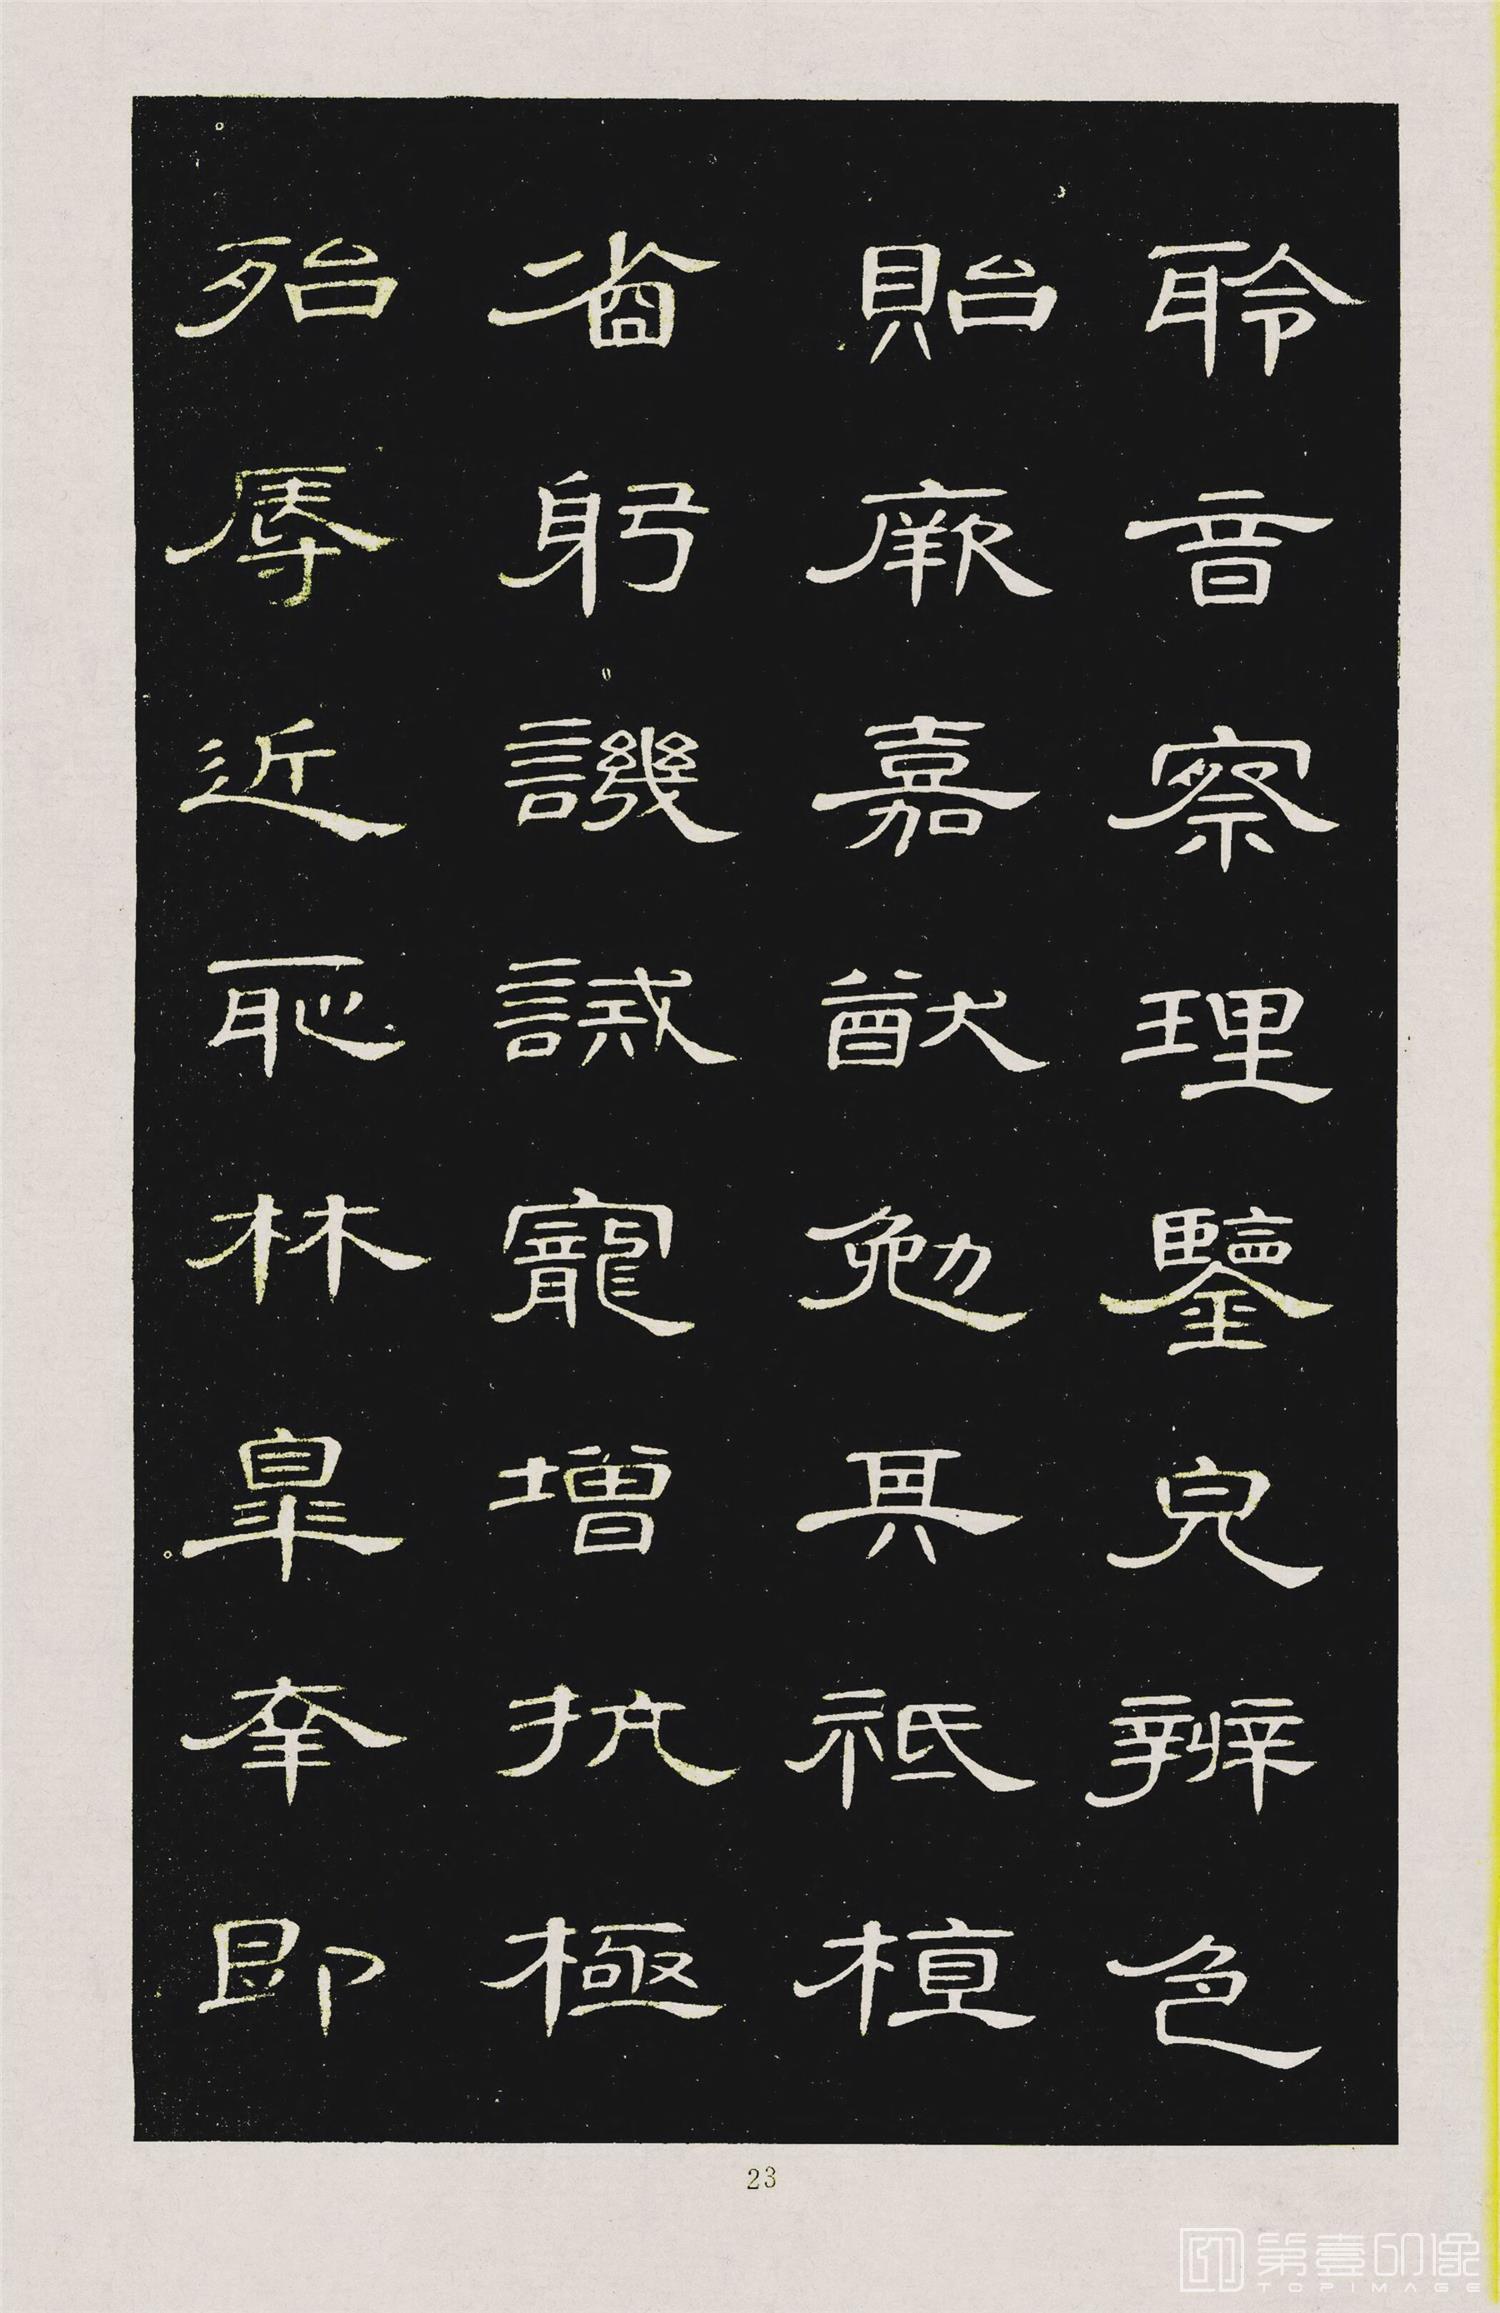 聆音察理鑒皃辨色
貽厥嘉猷勉其祗植
省躬譏誡寵增抗極
殆辱近恥林皋幸即
23
第壹印像
TOPIMAGE